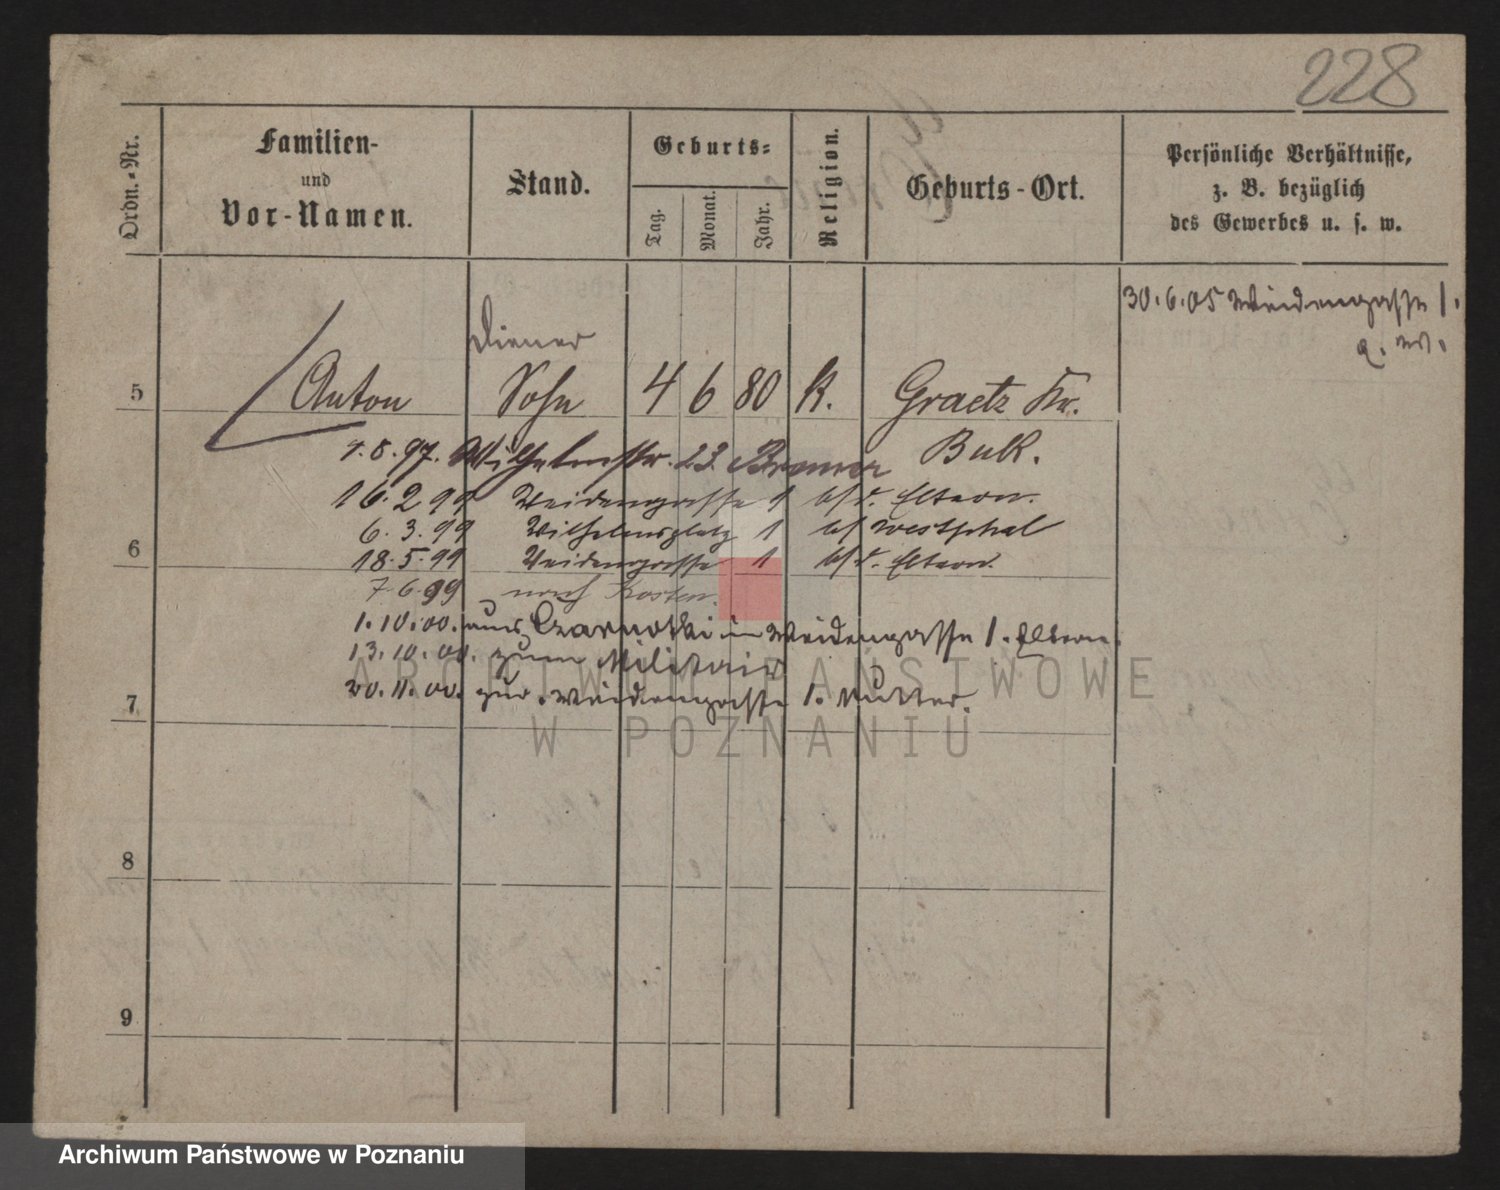 228
Ordn.-Nr.
Familien-
und
Vor-Namen.
Stand.
Geburts-
Tag.
Monat.
Jahr.
Religion.
Geburts-Ort.
Persönliche Verhältnisse,
z. B. bezüglich
des Gewerbes u. s. w.
30.6.05 Weidengasse 1.
Diener
5 Anton Sohn 4 6 80 K. Graetz Kr.
Buk.
1.8.97. Wilhelmstr. 23
16.2.99 Weidengasse 1 b/d. Eltern.
6.3.99 Wilhelmsplatz 1 b/ Westphal
6
18.5.99 Weidengasse 1 b/d. Eltern.
7.6.99 nach Kosten.
1.10.00. aus Czarnotki in Weidengasse 1. Eltern.
13.10.00. zum Militair
20.11.00. zur. Weidengasse 1. Mutter.
7
8
9
ARCHIWUM PAŃSTWOWE
W POZNANIU
Archiwum Państwowe w Poznaniu